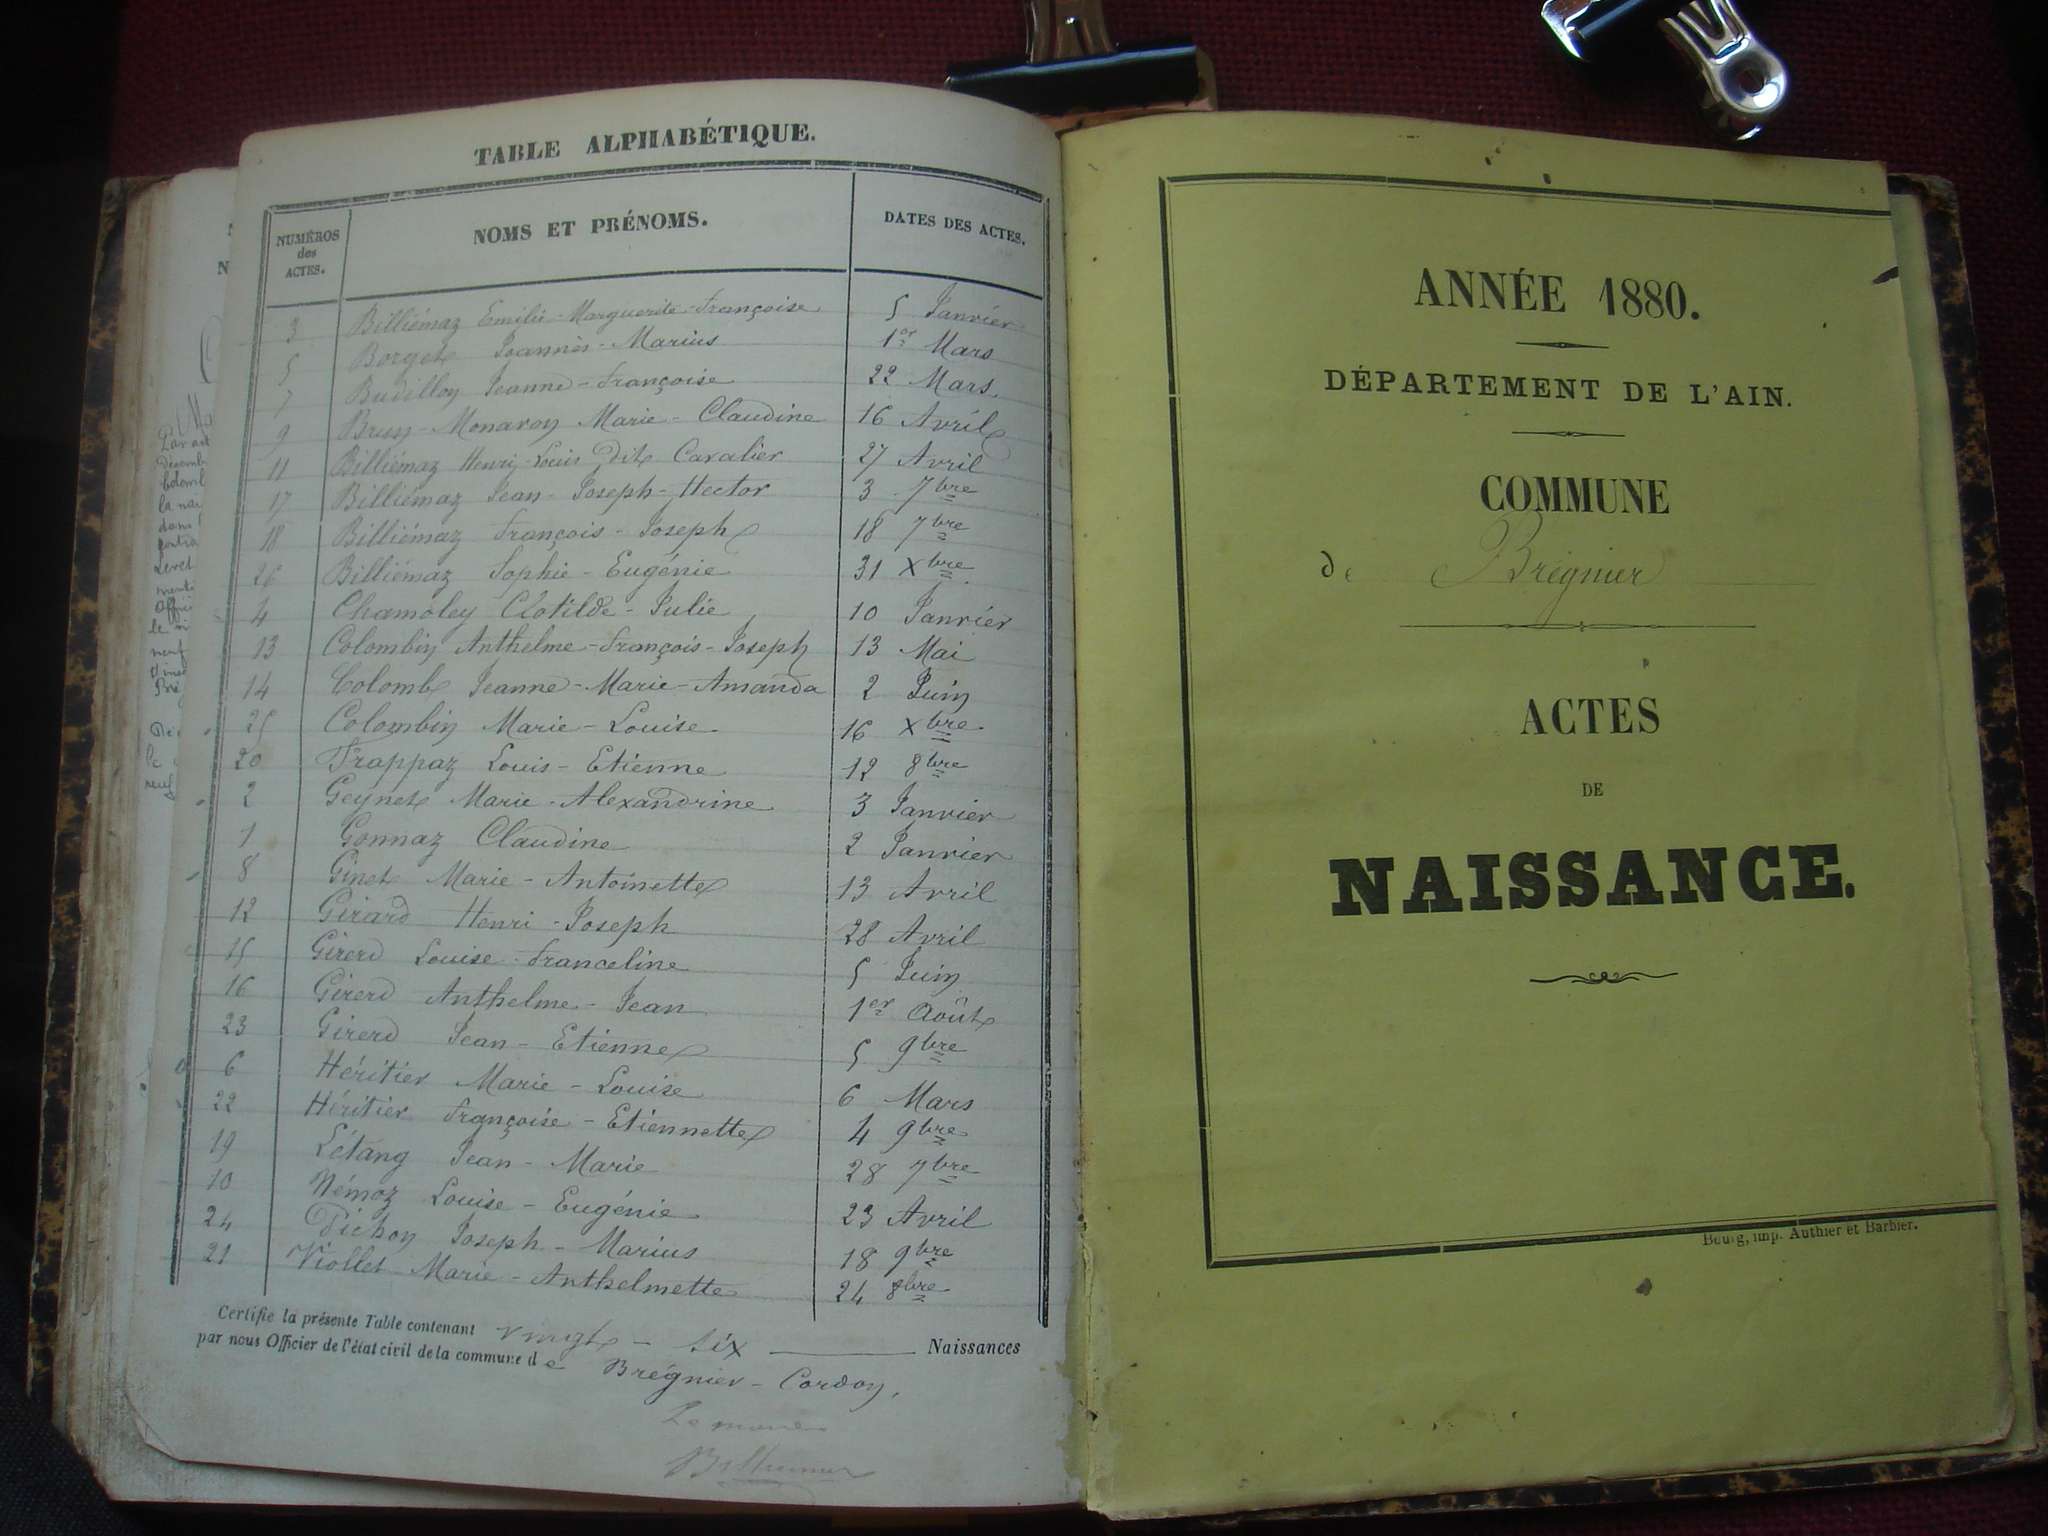 TABLE ALPHABÉTIQUE.
NUMÉROS des ACTES. NOMS ET PRÉNOMS. DATES DES ACTES.
3 Billiémaz Emilie-Marguerite-Françoise 5 Janvier
5 Borget Joannès-Marius 1er Mars
7 Budillon Jeanne-Françoise 22 Mars
9 Brun-Monaron Marie-Claudine 16 Avril
11 Billiémaz Henri-Louis dit Cavalier 27 Avril
17 Billiémaz Jean-Joseph-Hector 3 7bre
18 Billiémaz François-Joseph 18 7bre
26 Billiémaz Sophie-Eugénie 31 Xbre
4 Chamoley Clotilde-Julie 10 Janvier
13 Colombin Anthelme-François-Joseph 13 Mai
14 Colomb Jeanne-Marie-Amanda 2 Juin
25 Colombin Marie-Louise 16 Xbre
20 Frappaz Louis-Etienne 12 8bre
2 Geynet Marie-Alexandrine 3 Janvier
1 Gonnaz Claudine 2 Janvier
8 Ginet Marie-Antoinette 13 Avril
12 Girard Henri-Joseph 28 Avril
15 Girerd Louise-Franceline 5 Juin
16 Girerd Anthelme-Jean 1er Août
23 Girerd Jean-Etienne 5 9bre
6 Héritier Marie-Louise 6 Mars
22 Héritier Françoise-Etiennette 4 9bre
19 Létang Jean-Marie 28 7bre
10 Némoz Louise-Eugénie 23 Avril
24 Pichon Joseph-Marius 18 9bre
21 Viollet Marie-Anthelmette 24 8bre
Certifie la présente Table contenant vingt-six Naissances
par nous Officier de l'état civil de la commune de Brégnier-Cordon,
Le maire
ANNÉE 1880.
DÉPARTEMENT DE L'AIN.
COMMUNE
de Brégnier
ACTES
DE
NAISSANCE.
Bourg, imp. Authier et Barbier.